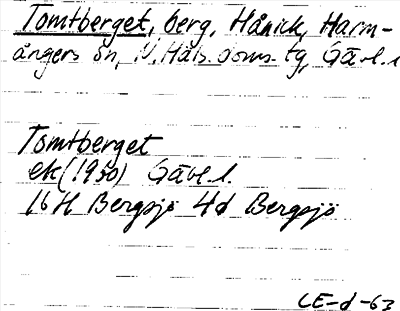 Tomtberget, berg, Hånick, Harm-
ångers sn, N. Häls. doms. tg, Gävl. l.
Tomtberget
ek (1950) Gävl. l.
16 H Bergsjö 4d Bergsjö
CE-d-63